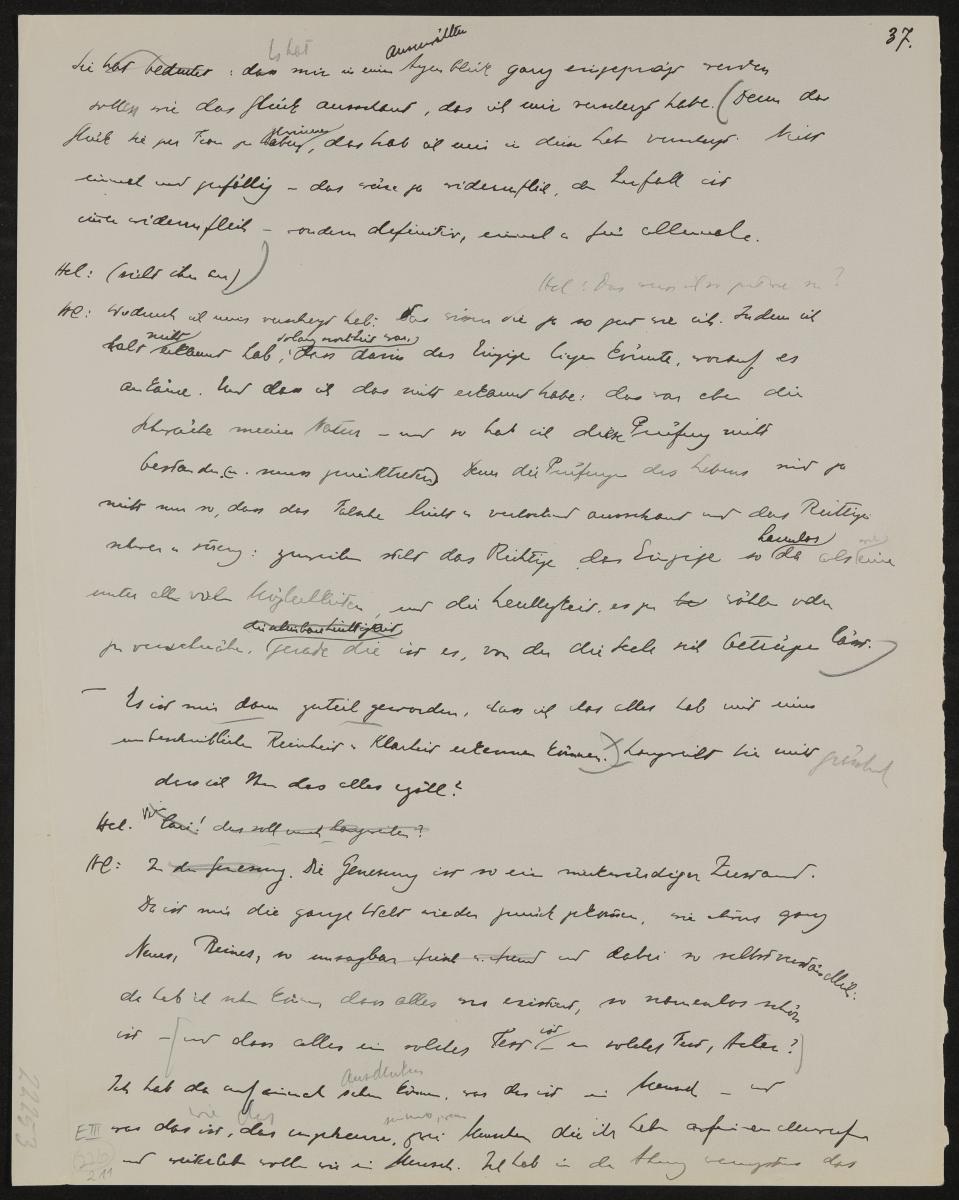 37.
Es hat auserwählten
Sie hat bedeutet: dass mir in einem Augenblick ganz eingeprägt werden
sollte wie das Glück ausschaut, das ich mir verscherzt habe. (Denn das
Glück Sie zur Frau zu haben, das hab ich mir in diesem Leben verscherzt. Nicht
einmal und zufällig – das wäre ja widerruflich, der Zufall ist
immer widerruflich – sondern definitiv, einmal u für allemale.
Hel: (sieht ihn an)
Hel: Das muss ich
HC: Wodurch ich mirs verscherzt hab: Das wissen Sie ja so gut wie ich. Indem ich
nicht solang noch Zeit war,
halt erkannt hab, dass darin das Einzige liegen könnte, worauf es
ankäme. Und dass ich das nicht erkannt habe: das war eben die
Schwäche meiner Natur – und so hab ich diese Prüfung nicht
bestanden (– muss zurücktreten) Denn die Prüfungen des Lebens sind ja
nicht nur so, dass das Falsche leicht u verlockend ausschaut und das Richtige
harmlos
schwer u streng: zuweilen steht das Richtige das Einzige so da als eine
unter allen vielen Möglichkeiten, und die Leichtigkeit, es zu wählen oder
zu verschmähen, gerade die ist es, von der die Seele sich betrügen lässt.
– Es ist mir dann zuteil geworden, dass ich das alles hab mit einer
unbeschreiblichen Reinheit u Klarheit erkennen können. Langweilt Sie nicht
dass ich Ihnen das alles erzähl?
Hel. Wie das soll mich langweilen?
HC: In der Genesung. Die Genesung ist so ein merkwürdiger Zustand.
Da ist mir die ganze Welt wieder zurück gekommen, wie etwas ganz
Neues, Reines, so unsagbar fremd und dabei so selbstverständlich:
da hab ich sehn können dass alles was existiert, so namenlos schön
ist – [und dass alles ein solches Fest ist – ein solches Fest, Helen?]
Ausdenken
Ich hab da auf einmal sehen können, was das ist ein Mensch – und
wie das
was das ist, das ungeheure, zwei Menschen die ihr Leben aufeinanderwerfen
und weiterleben wollen wie ein Mensch. Ich hab in der Ahnung wenigstens das
E III
22253